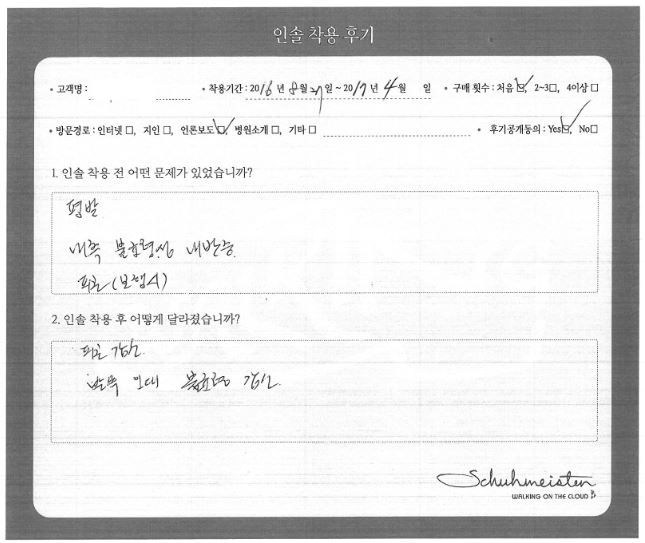 인솔 착용 후기
• 고객명 : • 착용기간 : 2016 년 8월 일 ~ 2017 년 4 월 일 • 구매 횟수 : 처음 ☑, 2~3☐, 4이상 ☐
• 방문경로 : 인터넷 ☐, 지인 ☐, 언론보도 ☑, 병원소개 ☐, 기타 ☐ • 후기공개동의 : Yes☑, No☐
1. 인솔 착용 전 어떤 문제가 있었습니까?
평발
내측
피로 (보행시)
2. 인솔 착용 후 어떻게 달라졌습니까?
피로 감소
감소
Schuhmeister
WALKING ON THE CLOUD